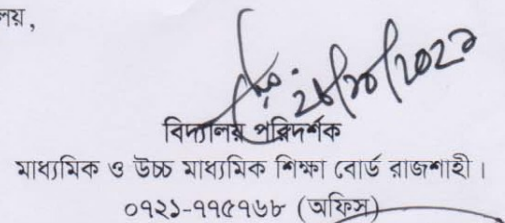 লয়,
বিদ্যালয় পরিদর্শক
মাধ্যমিক ও উচ্চ মাধ্যমিক শিক্ষা বোর্ড রাজশাহী।
০৭২১-৭৭৫৭৬৮ (অফিস)